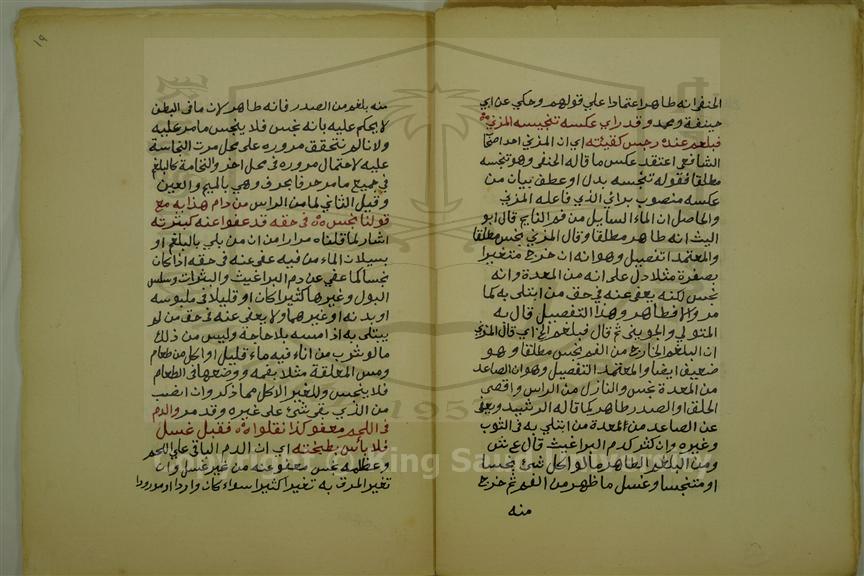 الحنفي انه طاهر اعتمادا علي قولهم وحكي عن ابي
حنيفة ومحمد وقد راي عكسه تنجيسه المزني
فبلغم عنده رجس كقيئته اي ان المزني احد اصحا
الشافعي اعتقد عكس ما قاله الحنفي وهو تنجسه
مطلقا فقوله تنجسه بدل او عطف بيان من
عكسه منصوب براي الذي فاعله المزني
والحاصل ان الماء السايل من فم النايم قال ابو
الليث انه طاهر مطلقا وقال المزني نجس مطلقا
والمعتمد التفصيل وهو انه ان خرج متغيرا
بصفرة مثلا دل علي انه من المعدة وانه
نجس لكنه يعفي عنه في حق من ابتلي به كما
مر والا فطاهر وهذا التفصيل قال به
المتولي والجويني ثم قال فبلغم الخ اي قال المزني
ان البلغم الخارج من الفم نجس مطلقا وهو
ضعيف ايضا والمعتمد التفصيل وهو ان الصاعد
من المعدة نجس والنازل من الراس واقصي
الحلق او الصدر طاهر كما قاله الرشيد ويعفي
عن الصاعد من المعدة من ابتلي به في الثوب
وغيره وان كثر كدم البراغيث قال ع ش
ومن البلغم الطاهر ما لو اكل شئ نجسا
او متنجسا وغسل ما ظهر من الفم ثم خرج
منه
١٩
منه بلغم من الصدر فانه طاهر لان ما في البطن
لا يحكم عليه بانه نجس فلا ينجس ما مر عليه
ولانا لو نتحقق مروره علي محل مرت النجاسة
عليه لاحتمال مروره في محل اخر والنخامة كالبلغم
في جميع ما مر حرفا بحرف وهي بالميم والعين
وقيل الثاني لما من الراس من دام هذا به مع
قولنا نجس في حقه قد عفوا عنه كبثرته
اشار لما قلناه مرارا من ان من بلي بالبلغم او
بسيلان الماء من فيه عفي عنه في حقه اذا كان
نجسا كما عفي عن دم البراغيث والبثرات وسلس
البول وغيرها كثيرا كان او قليلا في ملبوسه
او بدنه او غيرهما ولا يعفي عنه في حق من لو
يبتلي به اذا مسه بلا حاجة وليس من ذلك
ما لو شرب من اناء فيه ماء قليل او اكل من طعام
ومس المعلقة مثلا بفمه ووضعها في الطعام
فلا ينجس وللغير الاكل مما ذكر وان انصب
من الذي بقي شئ علي غيره وقد مر والدم
في اللحم معفو كذا نقلوا فقبل غسل
فلا باس بطبخته اي ان الدم الباقي علي اللحم
وعظمه نجس معفو عنه من غير غسل وان
تغير المرق به تغيرا كثيرا سواء كان واردا او مورودا
Copyright © King Saud University
1957